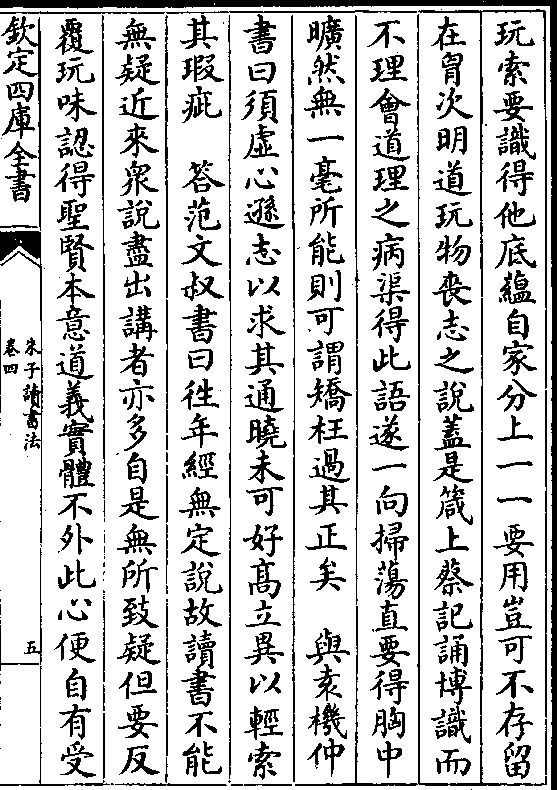 玩索要識得他底蘊自家分上一一要用豈可不存留
在胷次明道玩物喪志之說蓋是箴上蔡記誦博識而
不理會道理之病渠得此語遂一向掃蕩直要得胸中
曠然無一毫所能則可謂矯枉過其正矣　與袁機仲
書曰須虛心遜志以求其通曉未可好高立異以輕索
其瑕疵　答范文叔書曰徃年經無定說故讀書不能
無疑近來衆說盡出講者亦多自是無所致疑但要反
覆玩味認得聖賢本意道義實體不外此心便自有受
欽定四庫全書
朱子讀書法
卷四
五